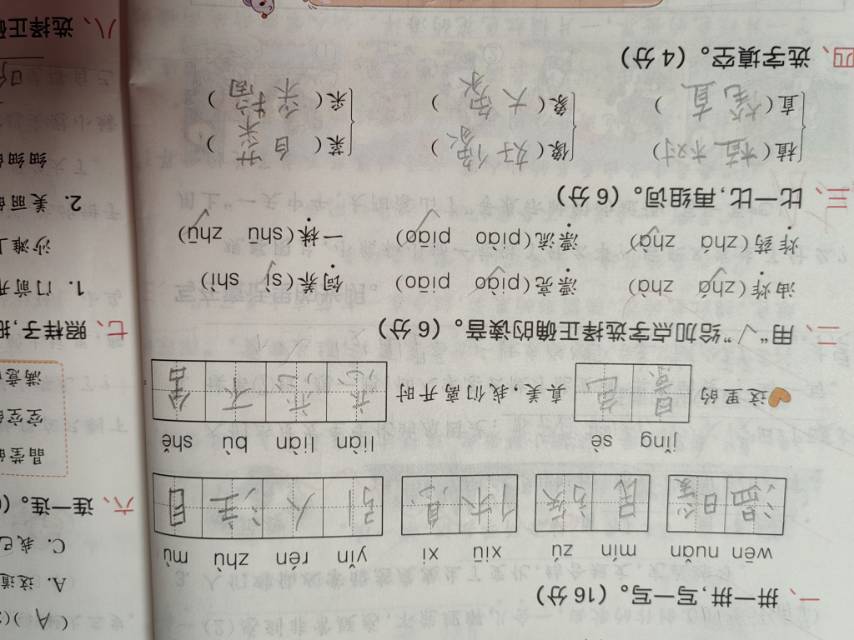 一、拼一拼,写一写。(16分)
wēn nuǎn mín zú xiū xi yǐn rén zhù mù
温暖 民族 休息 引人注目
jǐng sè liàn liàn bù shě
这里的 景色 真美,我们离开时 恋恋不舍
二、用“√”给加点字选择正确的读音。(6分)
油炸(zhá√ zhà) 漂亮(piào√ piāo) 饲养(sì√ shì)
炸药(zhá zhà√) 漂流(piào piāo√) 一株(shu zhū√)
三、比一比,再组词。(6分)
植(植树) 像(好像) 菜(白菜)
直(笔直) 象(大象) 采(采摘)
四、选字填空。(4分)
(A)(
A. 这道
C. 我已
六、连一连。(
晶莹的
空空的
满意的
七、照样子,把
1. 门前开
沙滩上
2. 美丽的
细细的
八、选择正确